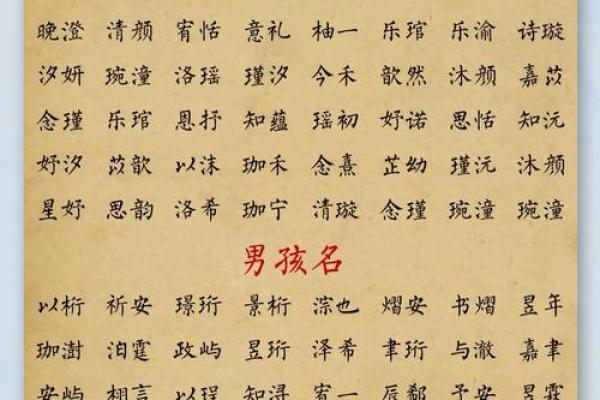 晚澄 清颜 宥恬 意礼 柚一 乐琯 乐渝 诗璇
汐妍 琬潼 洛瑶 瑾汐 今禾 歆然 沐颜 嘉苡
念瑾 乐琯 恩抒 知蕴 瑶初 妤诺 思恬 知沅
妤汐 苡歆 以沫 珈禾 念熹 芷幼 瑾沅 沐颜
星妤 思韵 洛希 珈宁 清璇 念瑾 琬潼 琬潼
男孩名
以桁 祈安 璟珩 景桁 淙也 熠安 书熠 昱年
珈澍 洎霆 政屿 昱珩 泽希 聿珩 与澈 嘉聿
安屿 栩言 以珵 知浔 宥一 辰郗 予安 昱霖